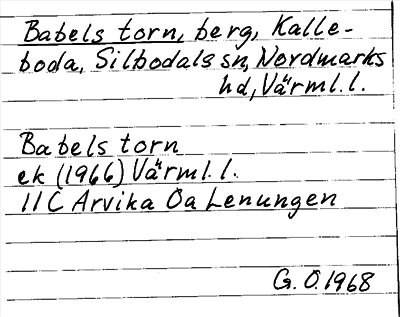 Babels torn, berg, Kalle-
boda, Silbodals sn, Nordmarks
hd, Värml. l.
Babels torn
ek (1966) Värml. l.
11C Arvika Oa Lenungen
G. O. 1968